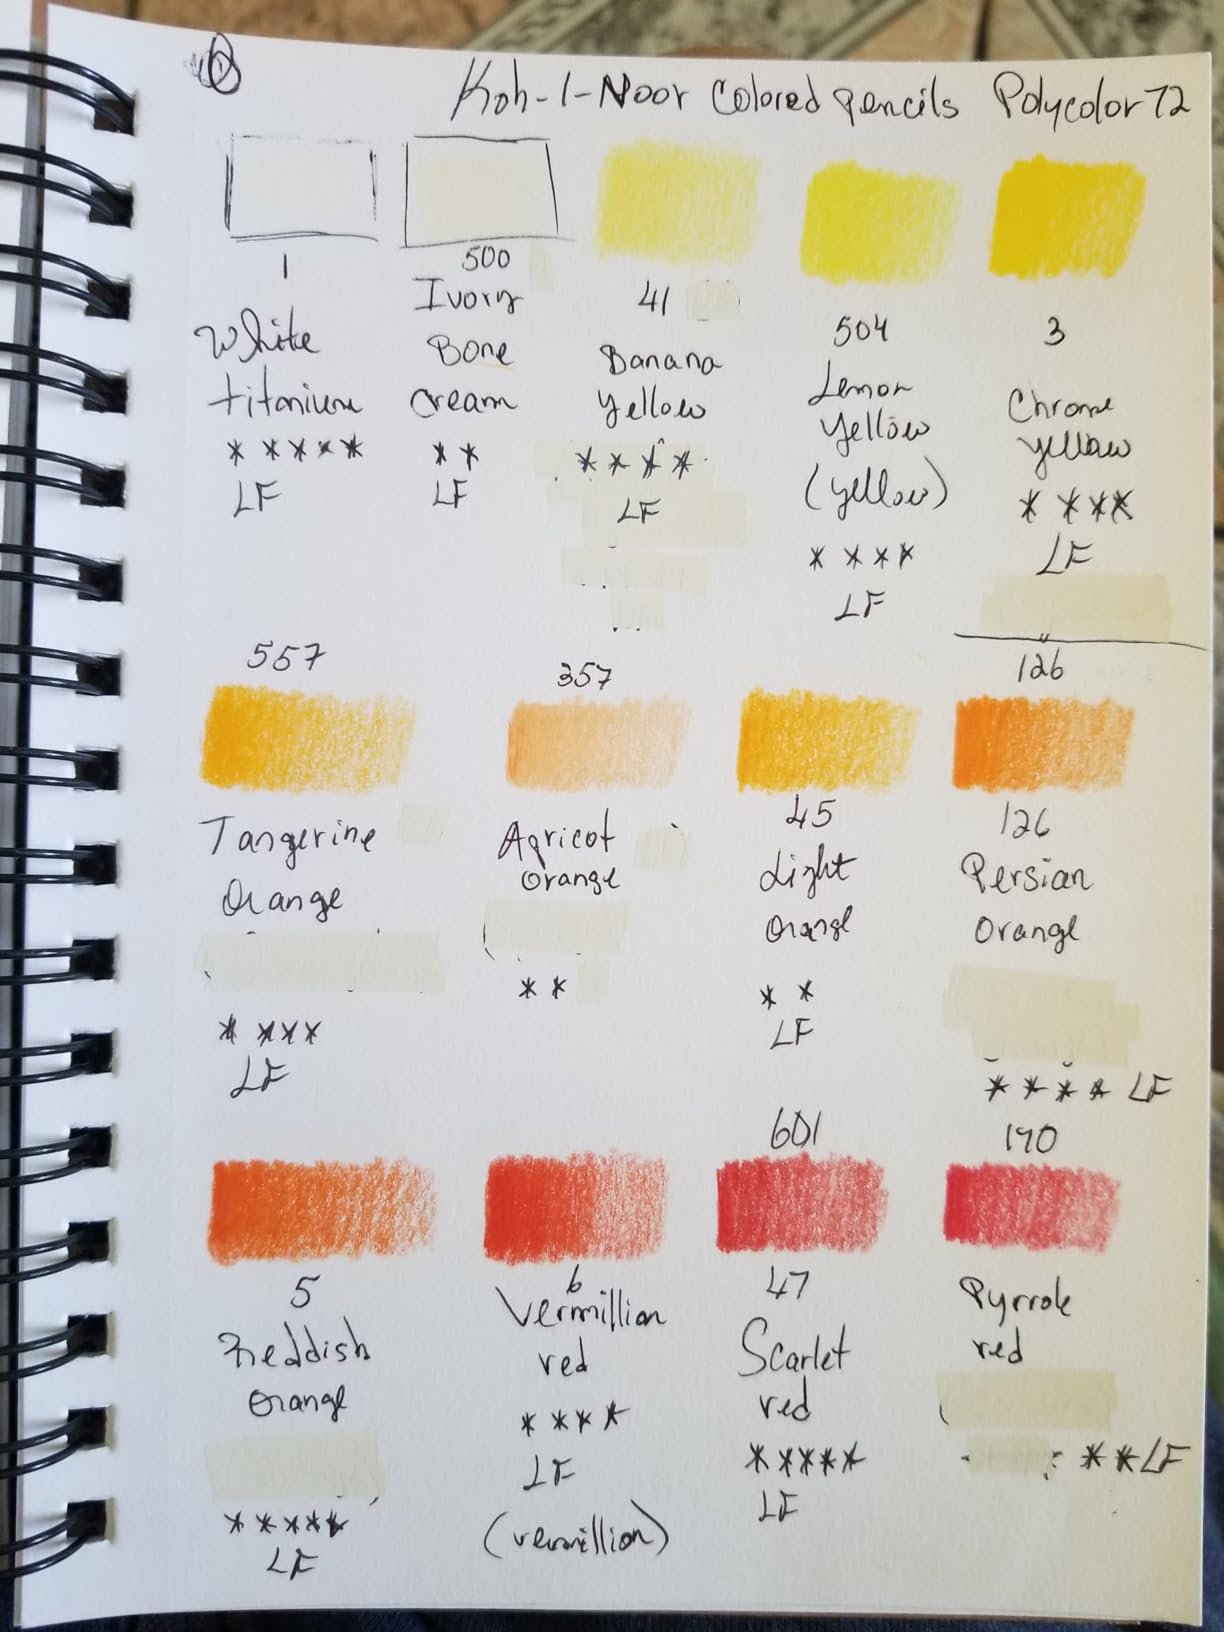 Koh-I-Noor Colored pencils Polycolor 72
1
White
titanium
* * * * *
LF
500
Ivory
Bone
cream
* *
LF
41
Banana
yellow
* * * *
LF
504
Lemon
yellow
(yellow)
* * * *
LF
3
Chrome
yellow
* * * *
LF
557
Tangerine
Orange
* * * *
LF
357
Apricot
orange
* *
45
Light
orange
* *
LF
126
126
Persian
Orange
* * * * LF
5
Reddish
orange
* * * * *
LF
6
Vermillion
red
* * * *
LF
(vermillion)
601
47
Scarlet
red
* * * * *
LF
170
Pyrrole
red
* * LF